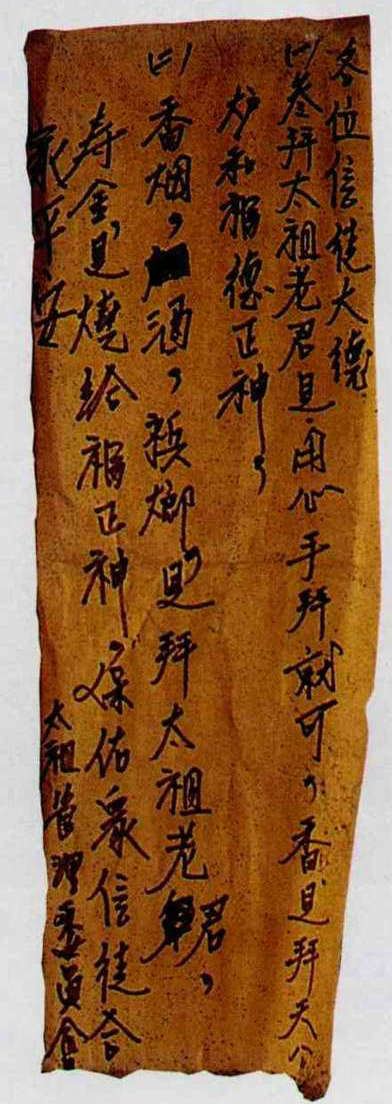 各位信徒大德
(一)叁拜太祖老君是用心手拜就可，香是拜天公
炉和福德正神，
(二)香烟，酒，檳榔，是拜太祖老君，
寿金是燒給福正神，保佑眾信徒合
家平安
太祖管理委員會